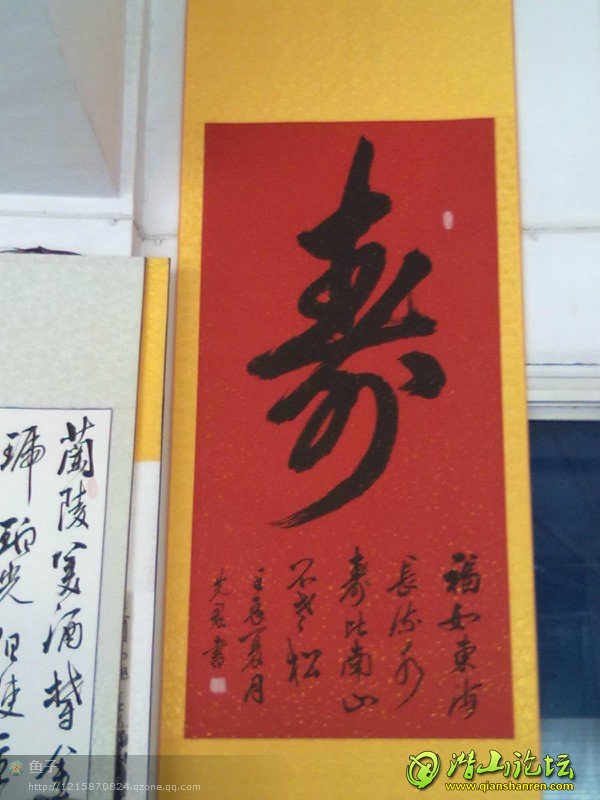 寿
福如東海
長流水
寿比南山
不老松
壬辰夏月
書
蘭陵美酒鬱金
琥珀光但使主
鱼子
http://1215870824.qzone.qq.com
潜山论坛
www.qianshanren.com